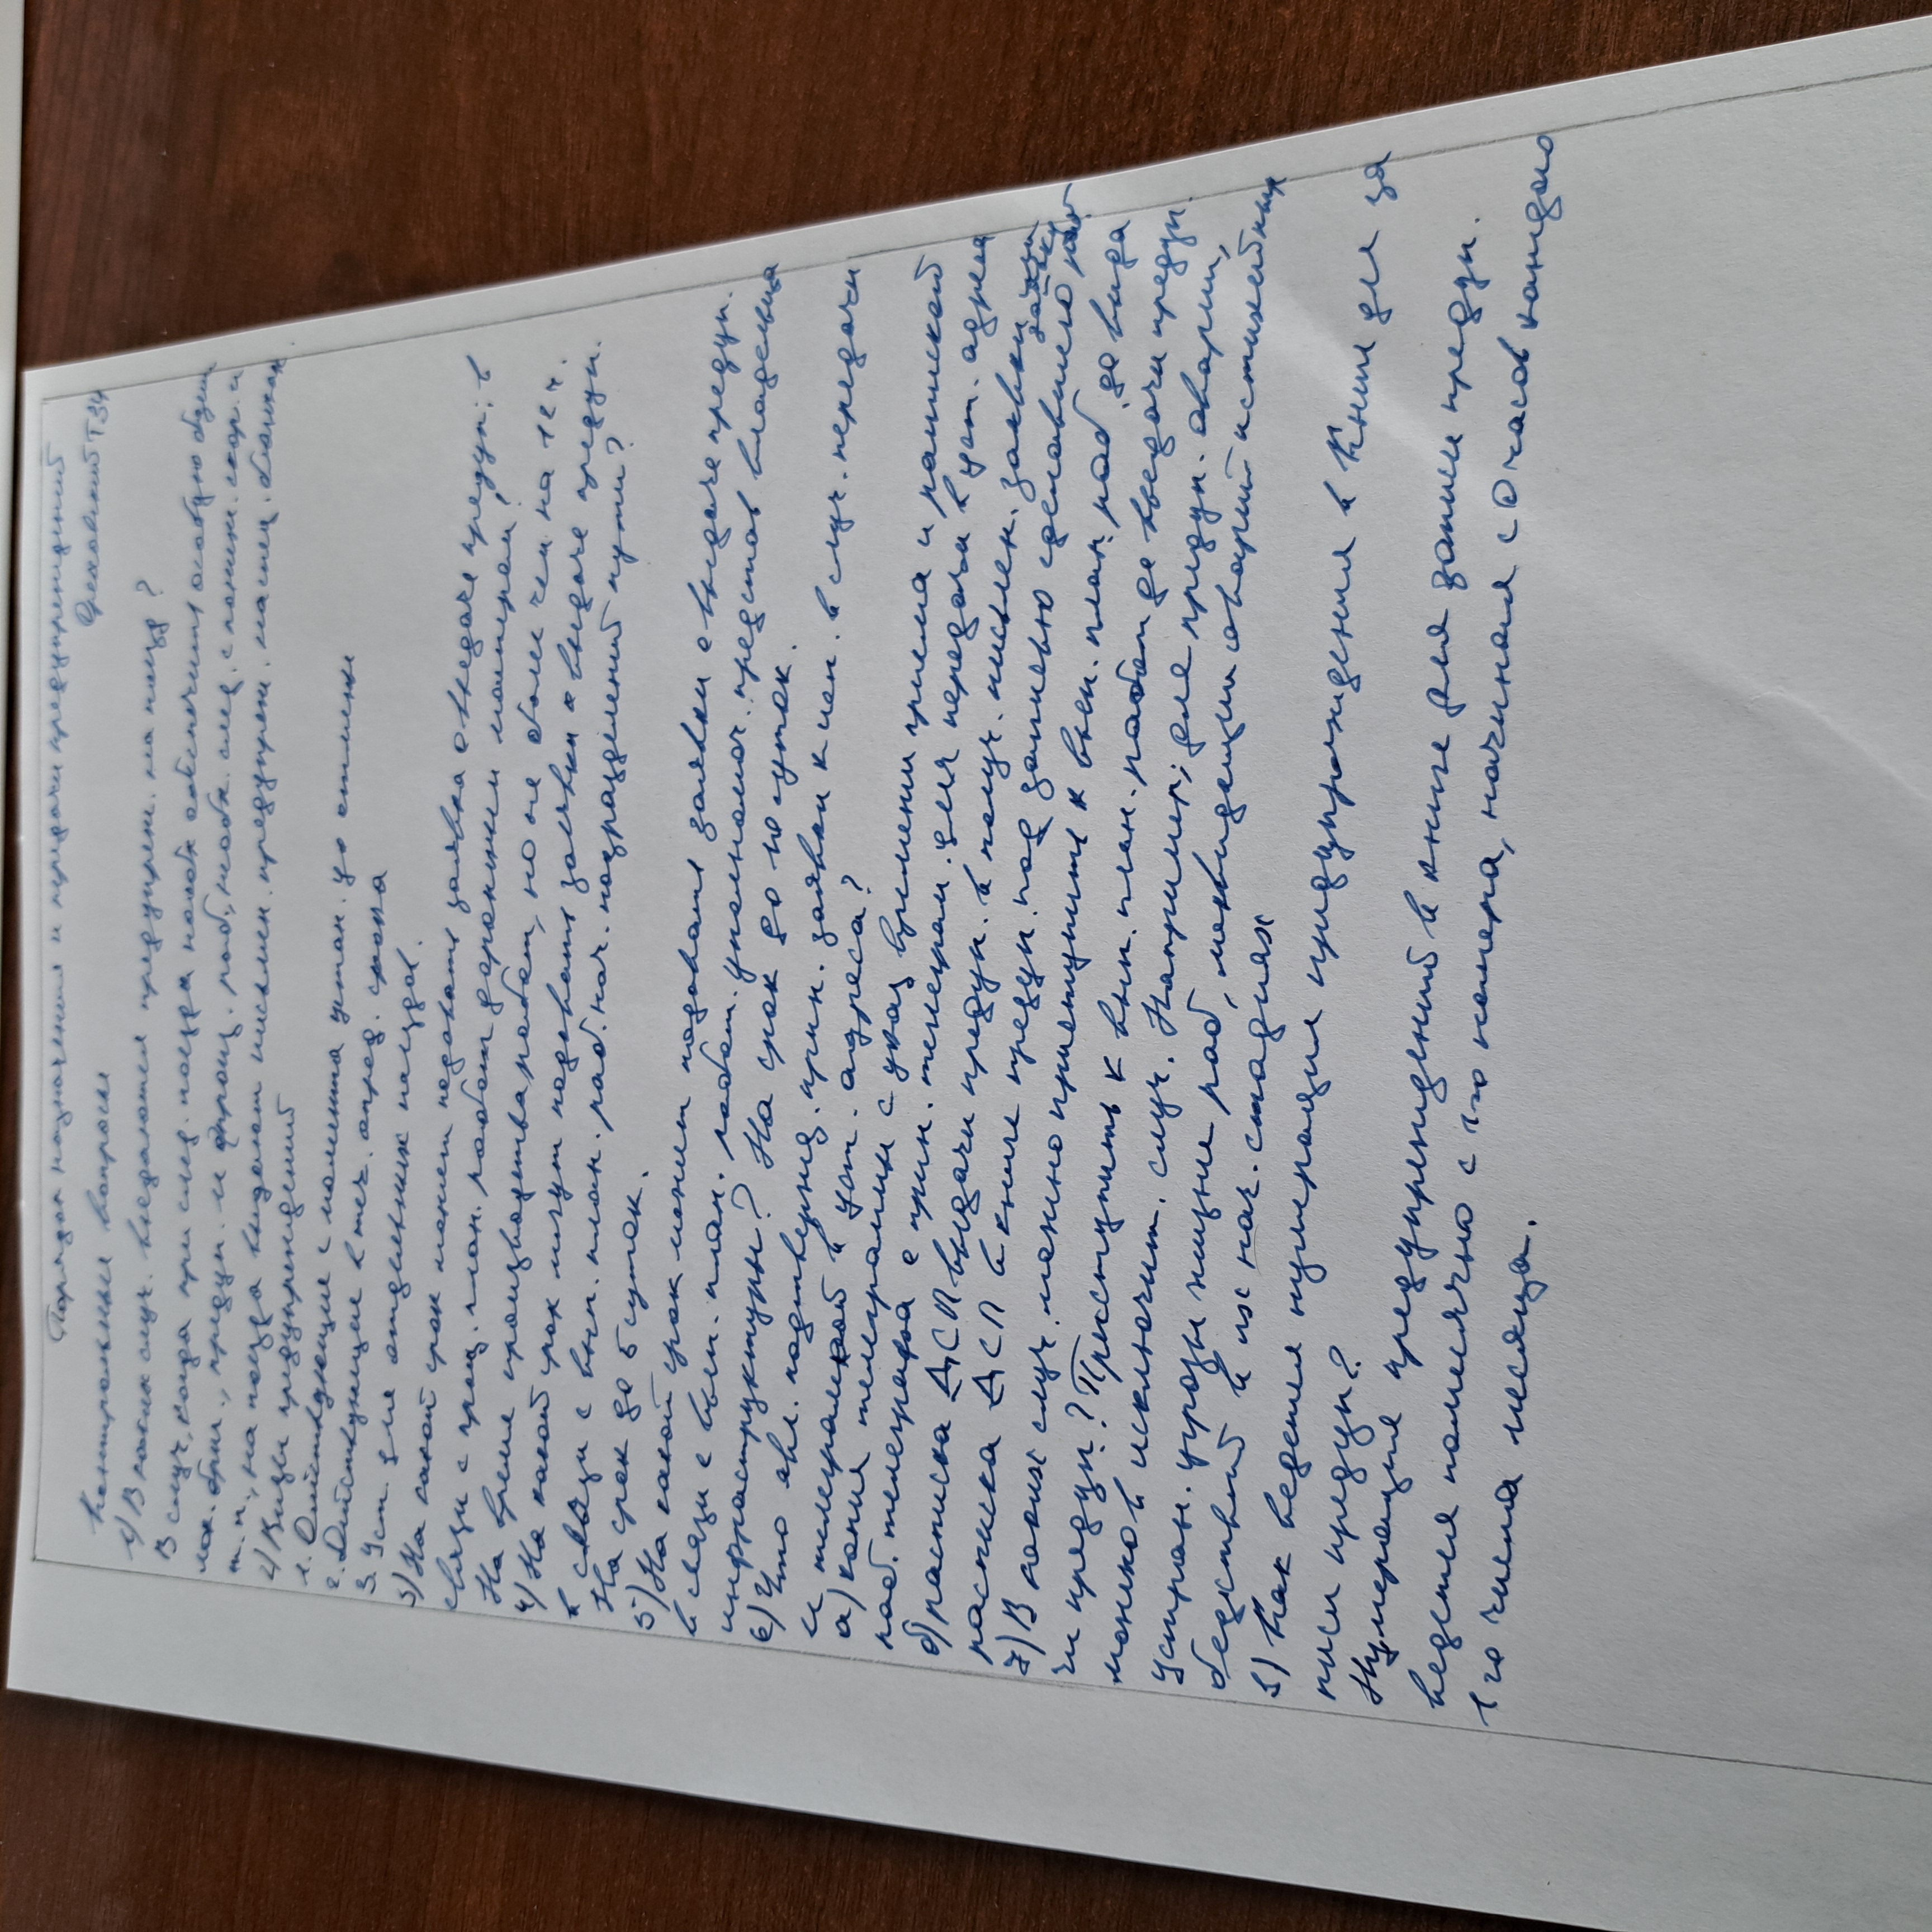 Порядок назначения и передачи предупреждений
Ореховский Т34
Контрольные вопросы
1) В каких случ. выдаются предупрежд. на поезд?
В случ., когда при след. поезда необх обеспечить особую бдит.
лок. бриг., предуп. и производ. работ, необх. след. с пониж. скор. и
т.п., на поезда выдают письмен. предупрежд. на спец. бланках.
2) Виды предупреждений
1. Действующие с момента устан. до отмены
2. Действующие в теч. опред. срока
3. Уст. для отдельных поездов.
3) На какой срок может подавать заявка о выдаче предуп. в
связи с произ. план. работ дорожным мастером?
На время производства работ, но не более чем на 12 ч.
4) На какой срок могут подавать заявки о выдаче предуп.
в связи с вып. план. раб. нач. подразделений пути?
На срок до 5 суток.
5) На какой срок может подавать заявки о выдаче предуп.
в связи с вып. план. работ. уполномоч. представ владельца
инфраструктуры? На срок до 10 суток.
6) Что явл. подтвержд. прин. заявки к исп. в случ. передачи
и телеграммой в уст. адреса?
а) копия телеграммы с указ времени приема и распиской
раб. телеграфа о прин. телеграм. для передачи в уст. адреса
б) расписка ДСП выдачи предуп. в получ. письмен. заявки или
расписка ДСП в книге предуп. под записью сделавшего заявку
7) В каких случ. можно приступить к вып. план. раб. до выда
чи предуп.? Приступить к вып. план. работ до выдачи предуп.
можно в исключит. случ. Например; для предуп. аварии,
устран. угрозы жизни раб, ликвидации аварий и стихийных
бедствий в их нач. стадиях
8) Как ведется нумерация предупреждения в Книге для за
писи предуп?
Нумерация предупреждений в книге для записи предуп.
ведется помесячно с 1-го номера, начиная с 0 часов каждого
1-го числа месяца.